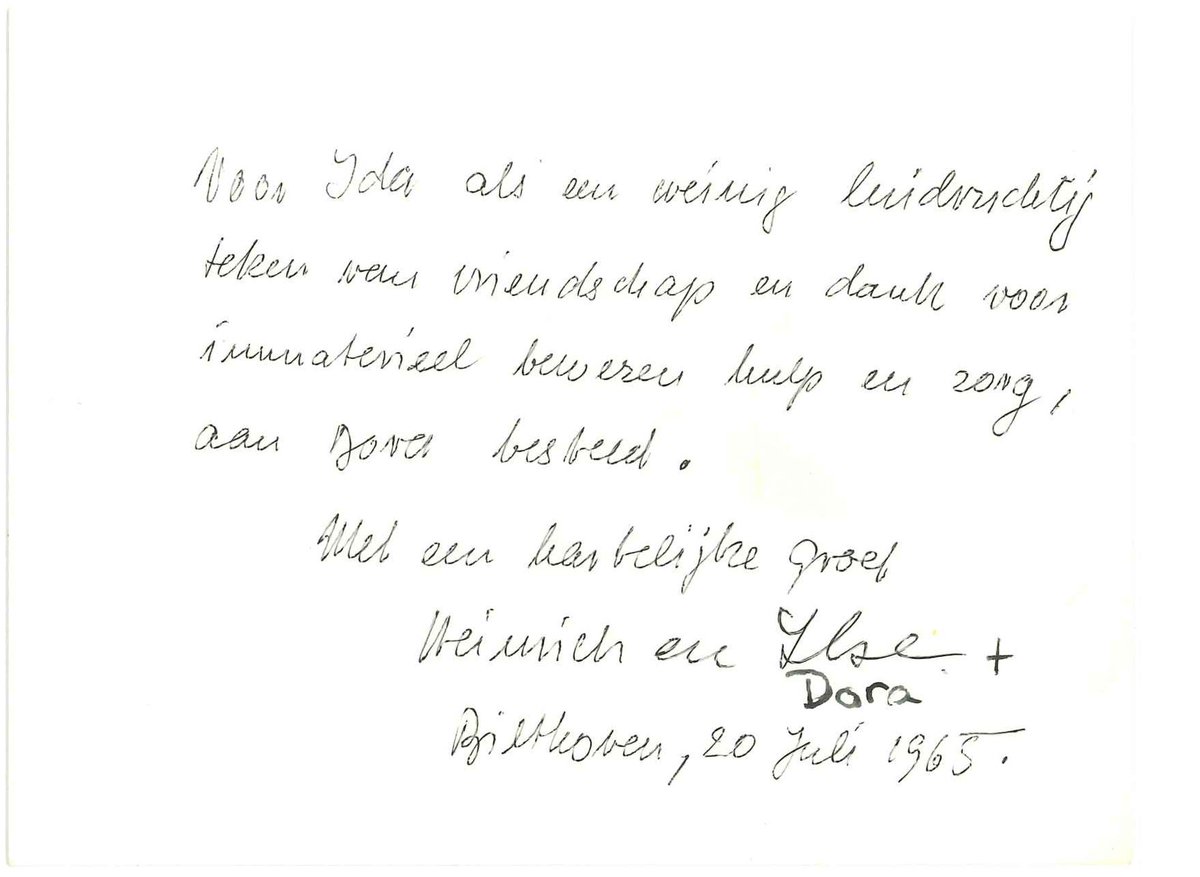 Voor Ida als een weinig luidruchtig
teken van vriendschap en dank voor
immaterieel bewezen hulp en zorg,
aan Dora besteed.
Met een hartelijke groet
Heinrich en Ilse +
Dora
Bilthoven, 20 Juli 1965.